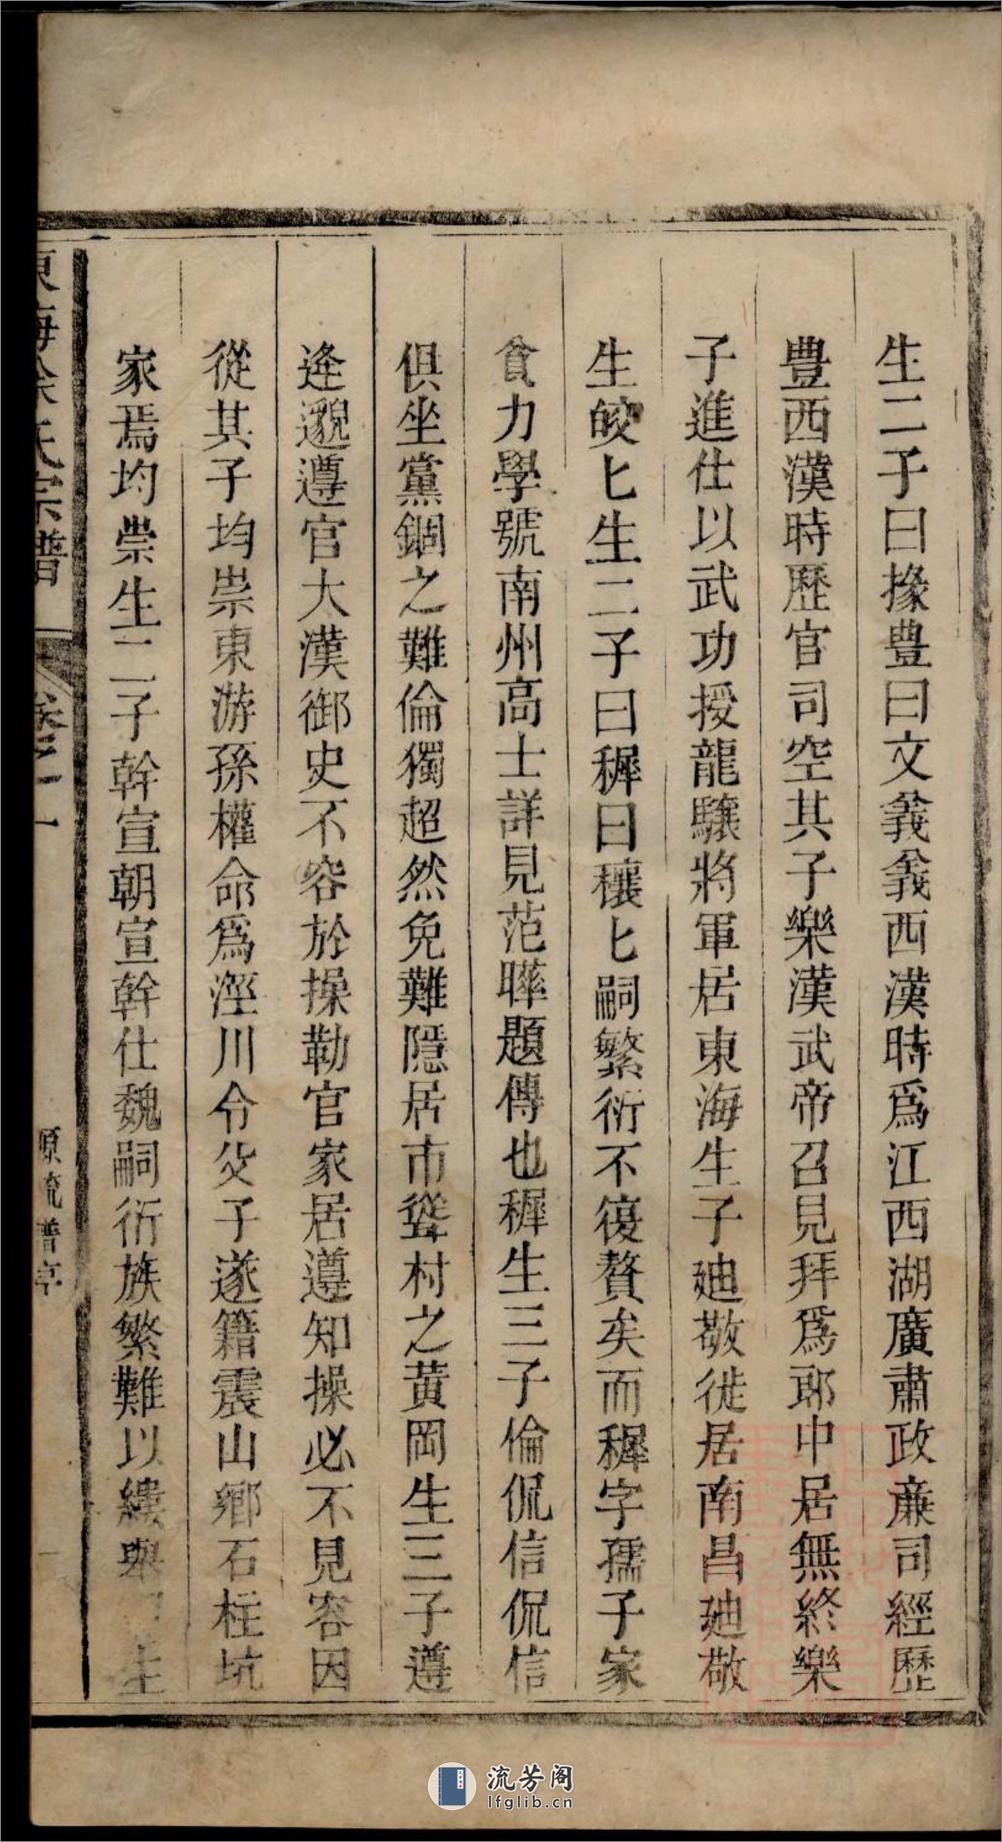 生二子曰掾豊曰文義義西漢時爲江西湖廣肅政廉司經歷
豊西漢時歷官司空其子樂漢武帝召見拜爲郎中居無終樂
子進仕以武功授龍驤將軍居東海生子廸敬徙居南昌廸敬
生皎匕生二子曰穉曰穰匕嗣繁衍不復贅矣而穉字孺子家
貧力學號南州高士詳見范曄題傳也穉生三子倫侃信侃信
俱坐黨錮之難倫獨超然免難隱居市聳村之黄岡生三子遵
逄邈遵官大漢御史不容於操勒官家居遵知操必不見容因
從其子均崇東游孫權命爲涇川令父子遂籍震山鄉石柱坑
家焉均崇生二子幹宣朝宣幹仕魏嗣衍族繁難以縷與生
東海徐氏宗譜
卷之一
源流譜序
流芳阁
lfglib.cn